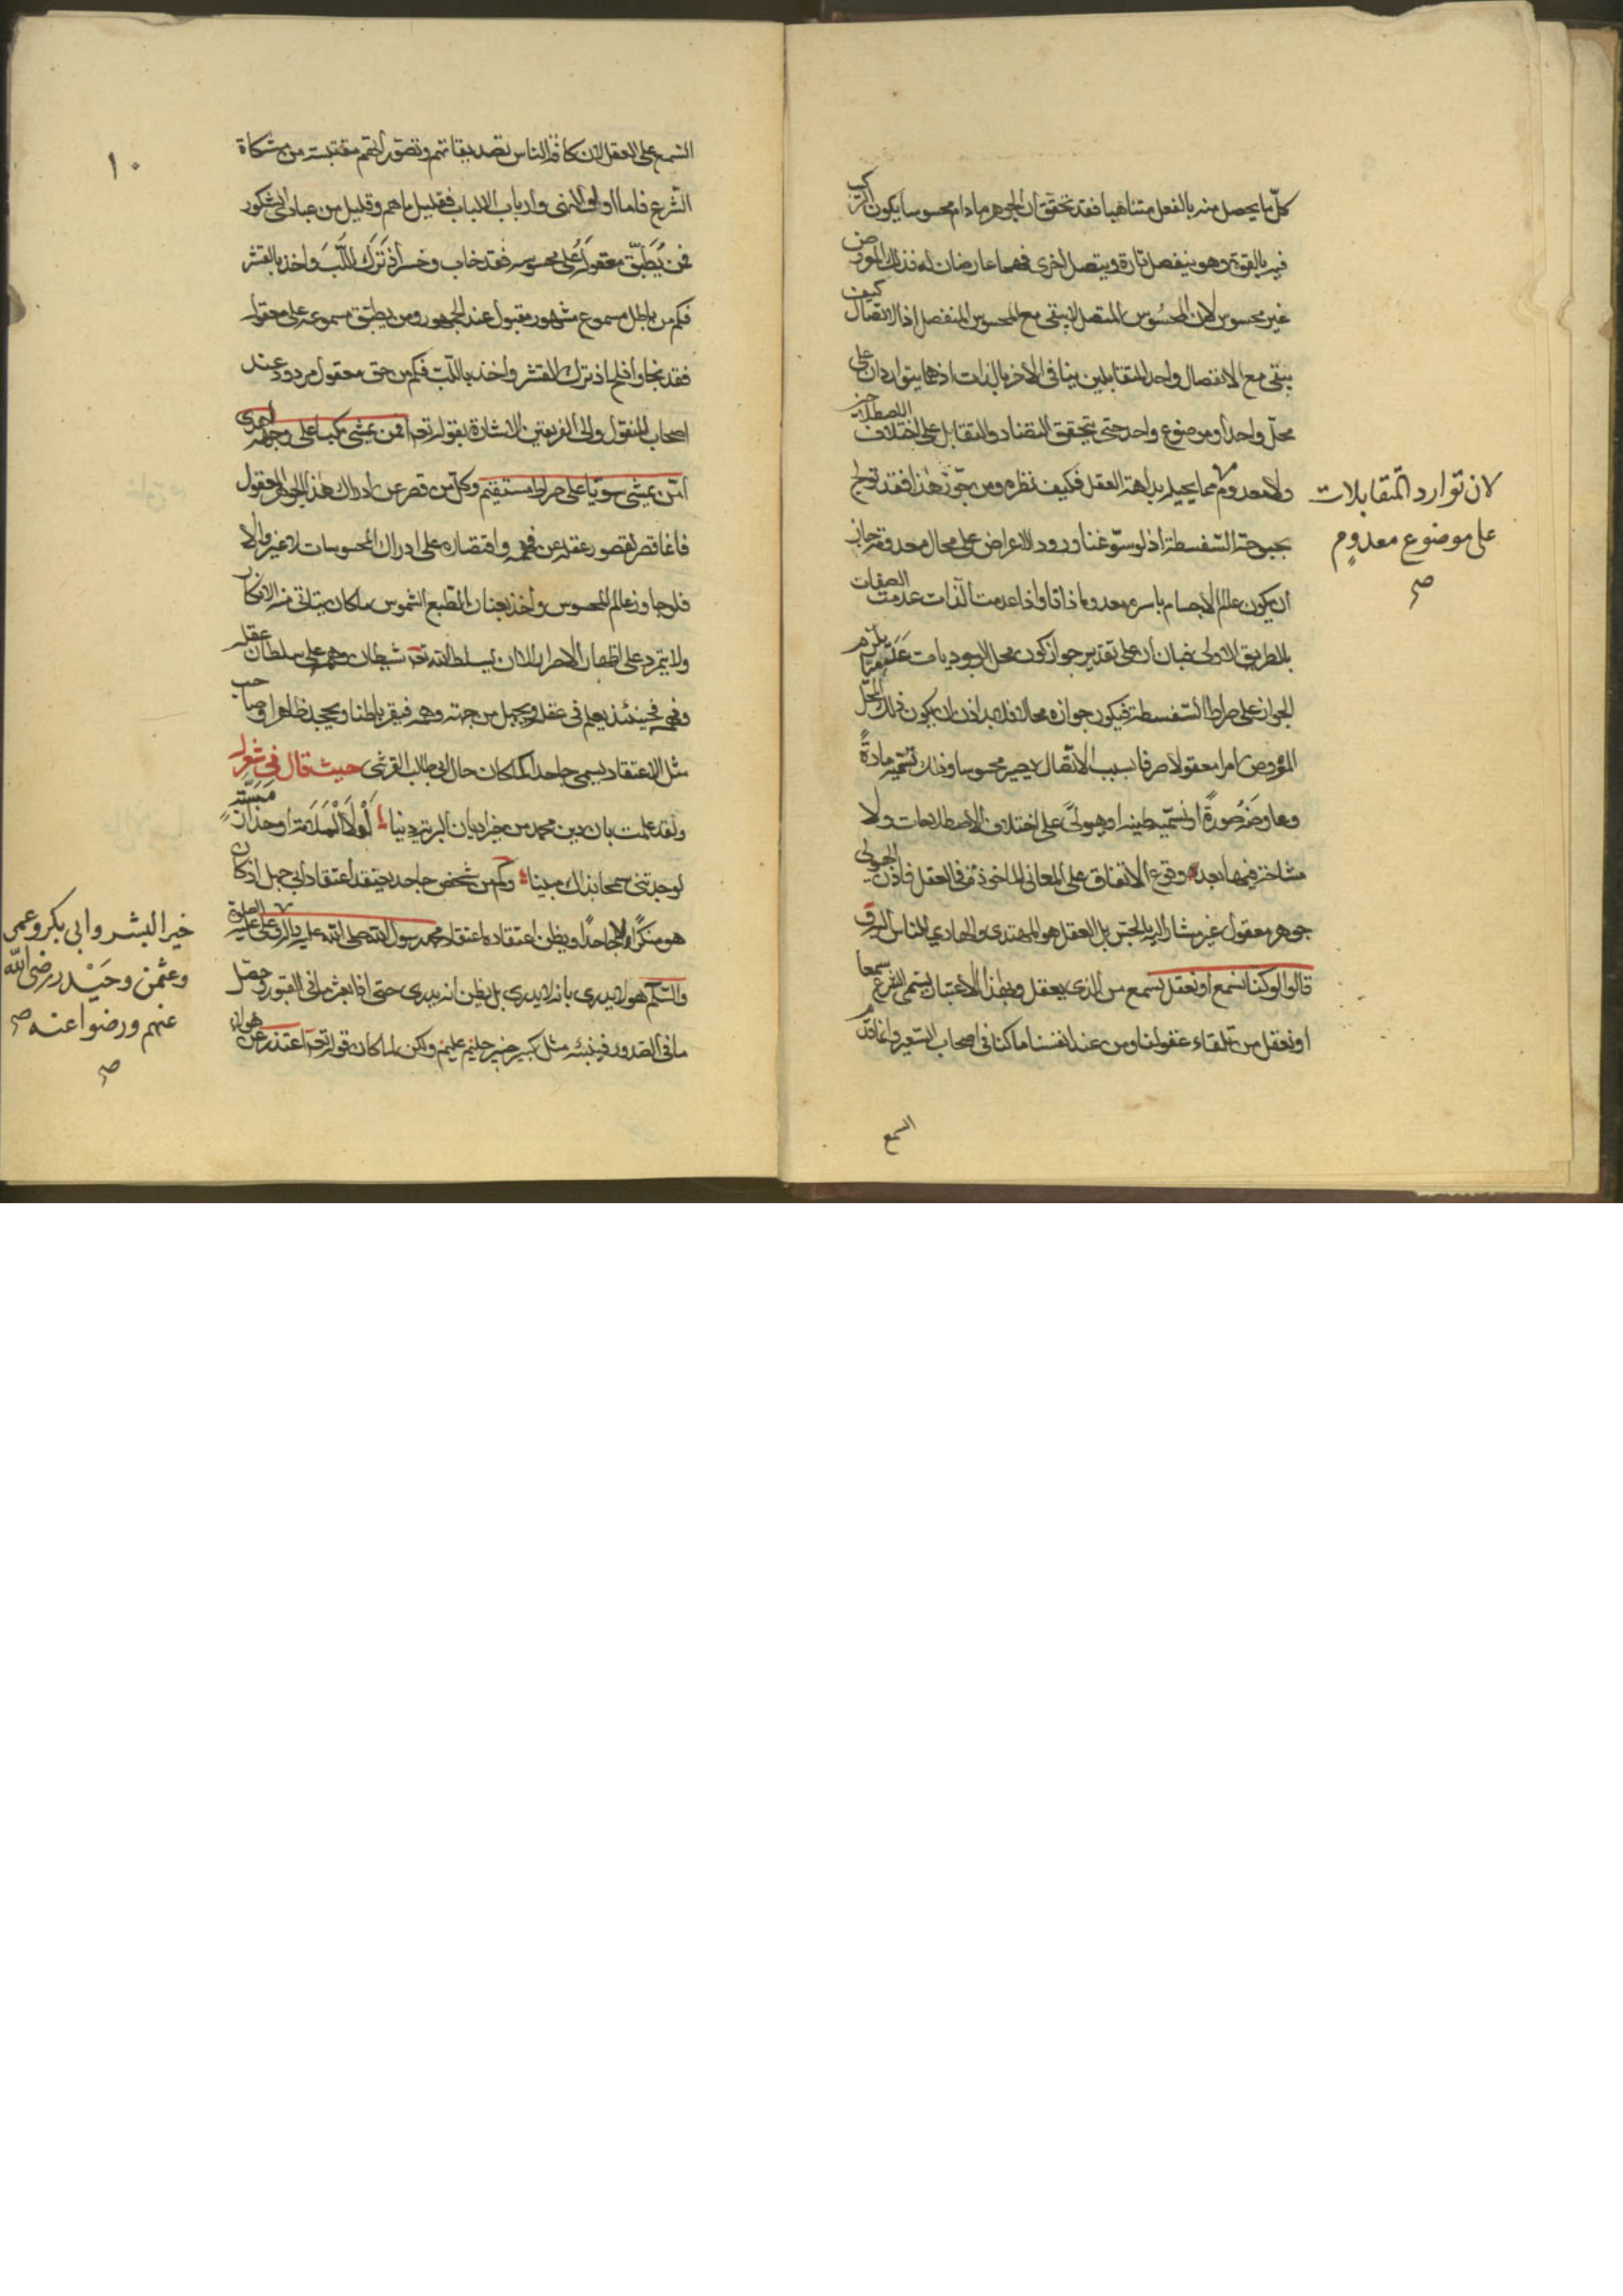 كلّ ما يحصل منه بالفعل متناهيا فقد تحقق ان الجوهر ما دام محسوسا يكون الترّكب
فيه بالقوة وهو ينفصل تارة ويتصل اخرى فهما عارضان له فذلك المعروض
غير محسوس لان المحسوس المتصل لا يبقى مع المحسوس المنفصل اذ الاتصال كيف
يبقى مع الانفصال واحد المتقابلين ينافى الاخر بالذات اذ هما يتواردان على
محلّ واحد او موضوع واحد حتى يتحقق التضاد والتقابل على اختلاف الاصطلاحين
ولا معدوم مما يحيله بداهة العقل فكيف نظره ومن جوّز هذا فقد تولج
لان توارد المتقابلات
على موضوع معدوم
صح
بحبوحة السفسطة اذ لو سوّغنا ورود الاعراض على محال معدومة جاز
ان يكون عالم الاجسام باسره معدوما ذاتا واذا عدمت الذات عدمت الصفات
بالطريق الاولى فبان ان على تقدير جواز كون محل الوجوديات عدميّا يلزم
الجواز على صراط السفسطة فيكون جوازه محالا فلا بد اذن ان يكون ذلك المحل
المفروض امرا معقولا صرفا بسبب الاتصال يصير محسوسا وذلك نسميه مادةً
وعارضه صُورةً او نسميه طينه او هيولىً على اختلاف الاصطلاحات ولا
مشاخة فيها بعد وقوع الاتفاق على المعانى الماخوذة فى العقل فاذن الهيولى
جوهر معقول غير مشار اليه بالحسّ بل العقل هو المهتدى والهادي للناس اليه وقد
قالوا لو كنا نسمع او نعقل نسمع من الذى يعقل وبهذا الاعتبار يسمى الشرع سمعا
او نعقل من تلقاء عقولنا ومن عند انفسنا ما كنا فى اصحاب السعير وانما قدّم
السمع
١٠
السمع على العقل لان كافة الناس تصديقاتهم وتصوراتهم مقتبسة من مشكاة
الشرع فاما اولى النهى وارباب الالباب فقليل ما هم وقليل من عبادى الشكور
فمن يُطبّق معقوله على محسوسه فقد خاب وخسر اذ تَرَك اللّبّ واخذ بالقشر
فكم من باطل مسموع مشهور مقبول عند الجمهور ومن يطبّق مسموعه على معقوله
فقد نجا وافلح اذ ترك القشر واخذ باللبّ فكم من حق معقول مردود عند
اصحاب المنقول والى الفريقين الاشارة بقوله تعه افمن يمشى مكبا على وجهه اهدى
امّن يمشى سويّا على صراط مستقيم وكل من قصر عن ادراك هذا الجوهر المعقول
فانما قصر لقصور عقله عن فهمه واقتصاره على ادراك المحسوسات لا غير والا
فلو جاوز عالم المحسوس واخذ بعنان الطبع الشموس ما كان يتاتى منه الانكار
ولا يتمرد على اظهار الاصرار الا ان يسلط الله تعه شيطان وهمه على سلطان عقله
وفهمه فحينئذ يعلم فى عقله ويجهل من جهة وهمه فيقر باطنا ويجحد ظاهرا وصاحب
مثل الاعتقاد يسمى جاحدا كما كان حال ابى طالب القرشى حيث قال فى شعره
ولقد علمت بان دين محمد من خير اديان البرية دينا لَوْلاَ الْمَلاَمَة او حذار مَسَبَّةٍ
لوجدتنى سمحا بذاك مبينا وكم من شخص جاحد يعتقد اعتقاد ابى جهل اذ كان
هو منكرًا لا جاحدًا ويظن اعتقاده اعتقاد محمد رسول الله صلى الله عليه والروعلى عليه الصلوة
والسّلم هو لا يدرى بانه لا يدرى بل يظن انه يدرى حتى اذا بعثر ما فى القبور وحصّل
ما فى الصدور فينبئه مثل كبير خبير حليم عليم ولكن لما كان قوله تعه اعتذر عن هولاء
خير البشر وابى بكر وعمر
وعثمن وحَيْدر رضى الله
عنهم ورضوا عنه صح
صح